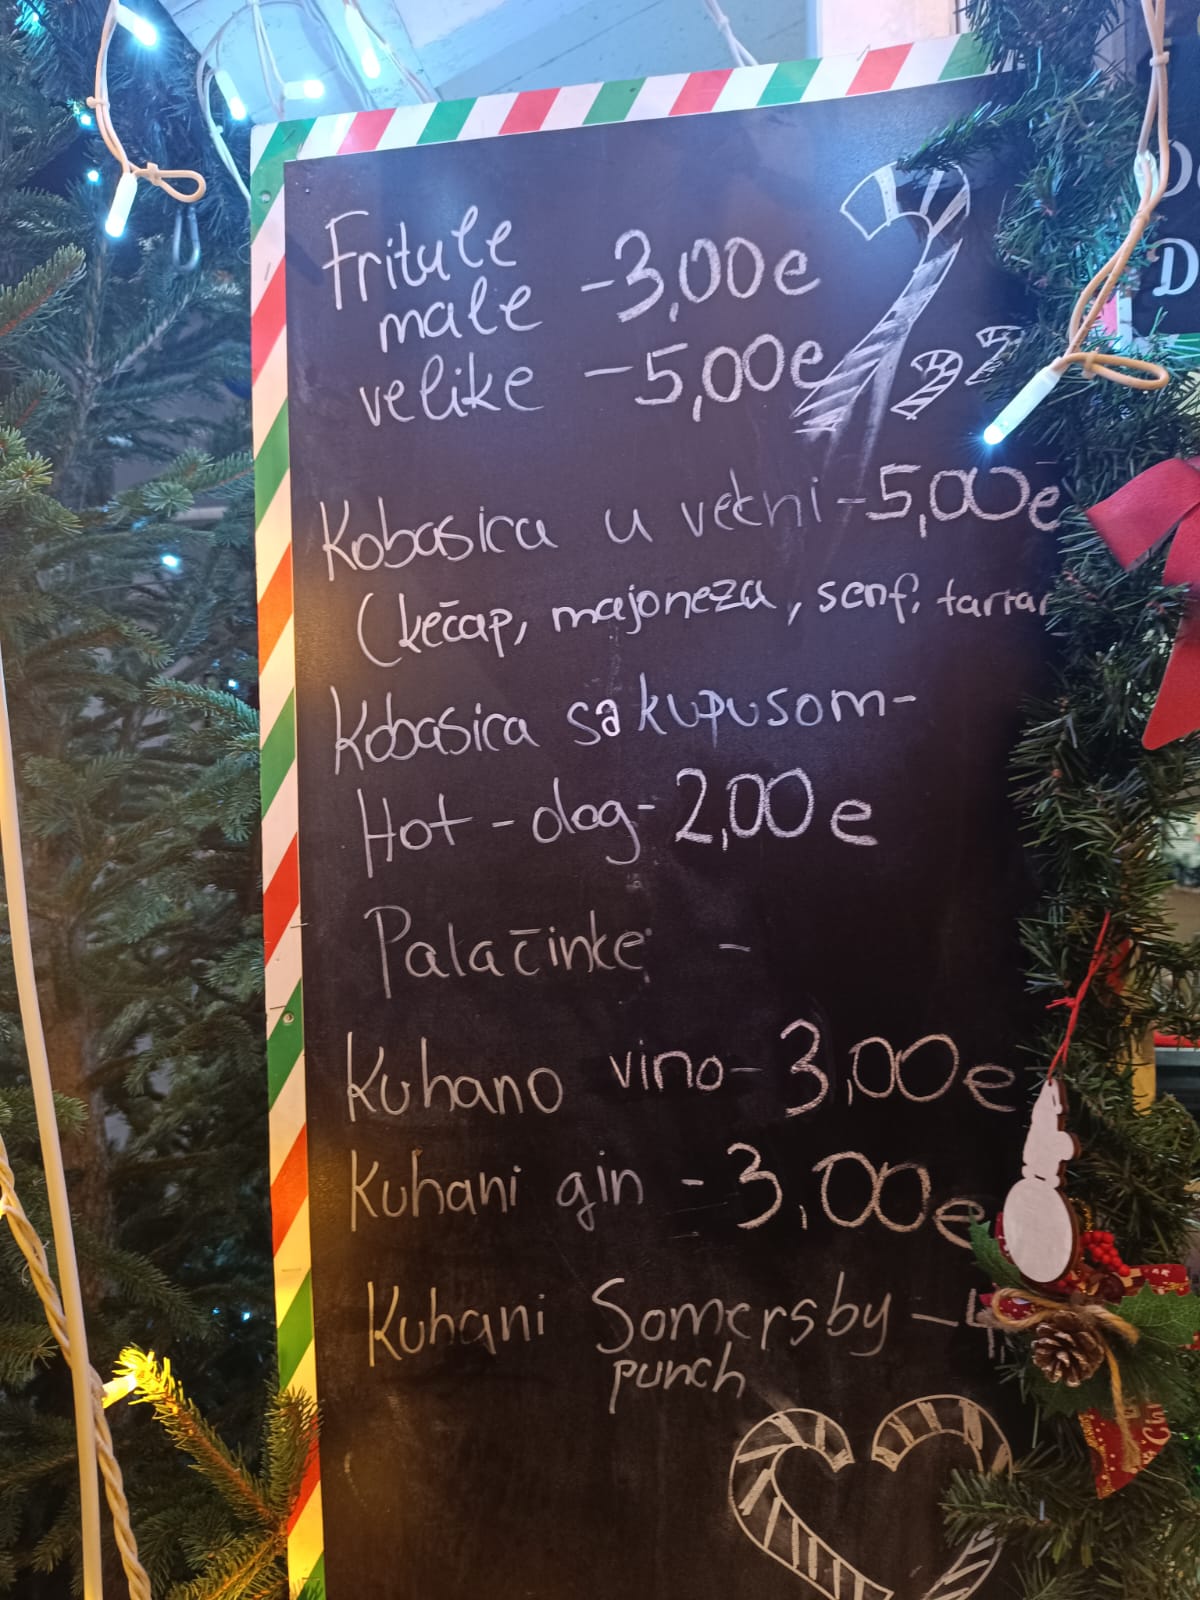 Fritule
male - 3,00e
velike - 5,00e
Kobasica u većni - 5,00e
(kečap, majoneza, senf, tartar
Kobasica sa kupusom -
Hot - dog - 2,00 e
Palačinke -
Kuhano vino - 3,00e
Kuhani gin - 3,00e
Kuhani Somersby - 4,
punch